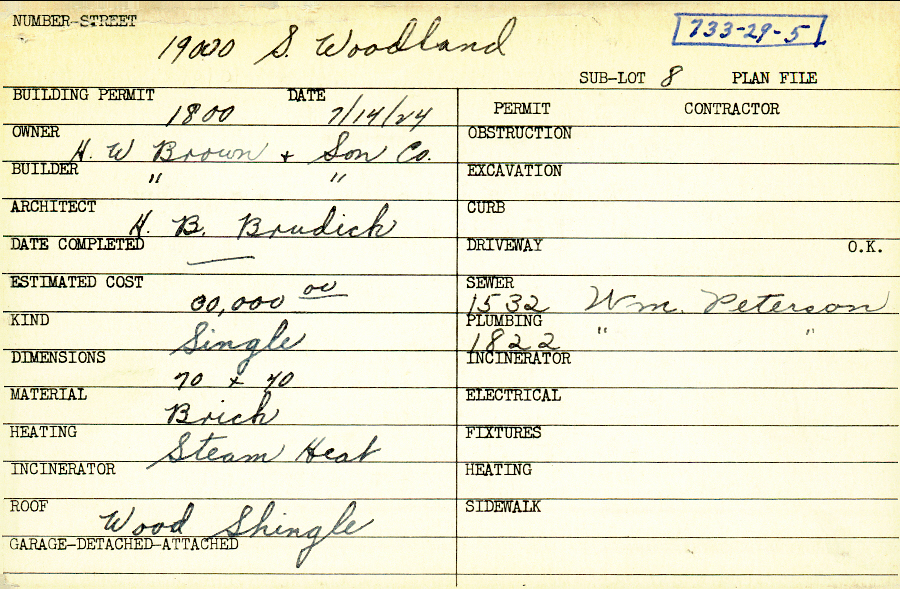 NUMBER-STREET
19000 S. Woodland
733-29-5
SUB-LOT 8 PLAN FILE
BUILDING PERMIT 1800 DATE 7/14/24
OWNER H. W Brown + Son Co.
BUILDER " "
ARCHITECT H. B. Brudick
DATE COMPLETED —
ESTIMATED COST 00,000 00
KIND Single
DIMENSIONS 70 x 40
MATERIAL Brick
HEATING Steam Heat
INCINERATOR
ROOF Wood Shingle
GARAGE-DETACHED-ATTACHED
PERMIT CONTRACTOR
OBSTRUCTION
EXCAVATION
CURB
DRIVEWAY O.K.
SEWER
1532 Wm. Peterson
PLUMBING
1822 " "
INCINERATOR
ELECTRICAL
FIXTURES
HEATING
SIDEWALK